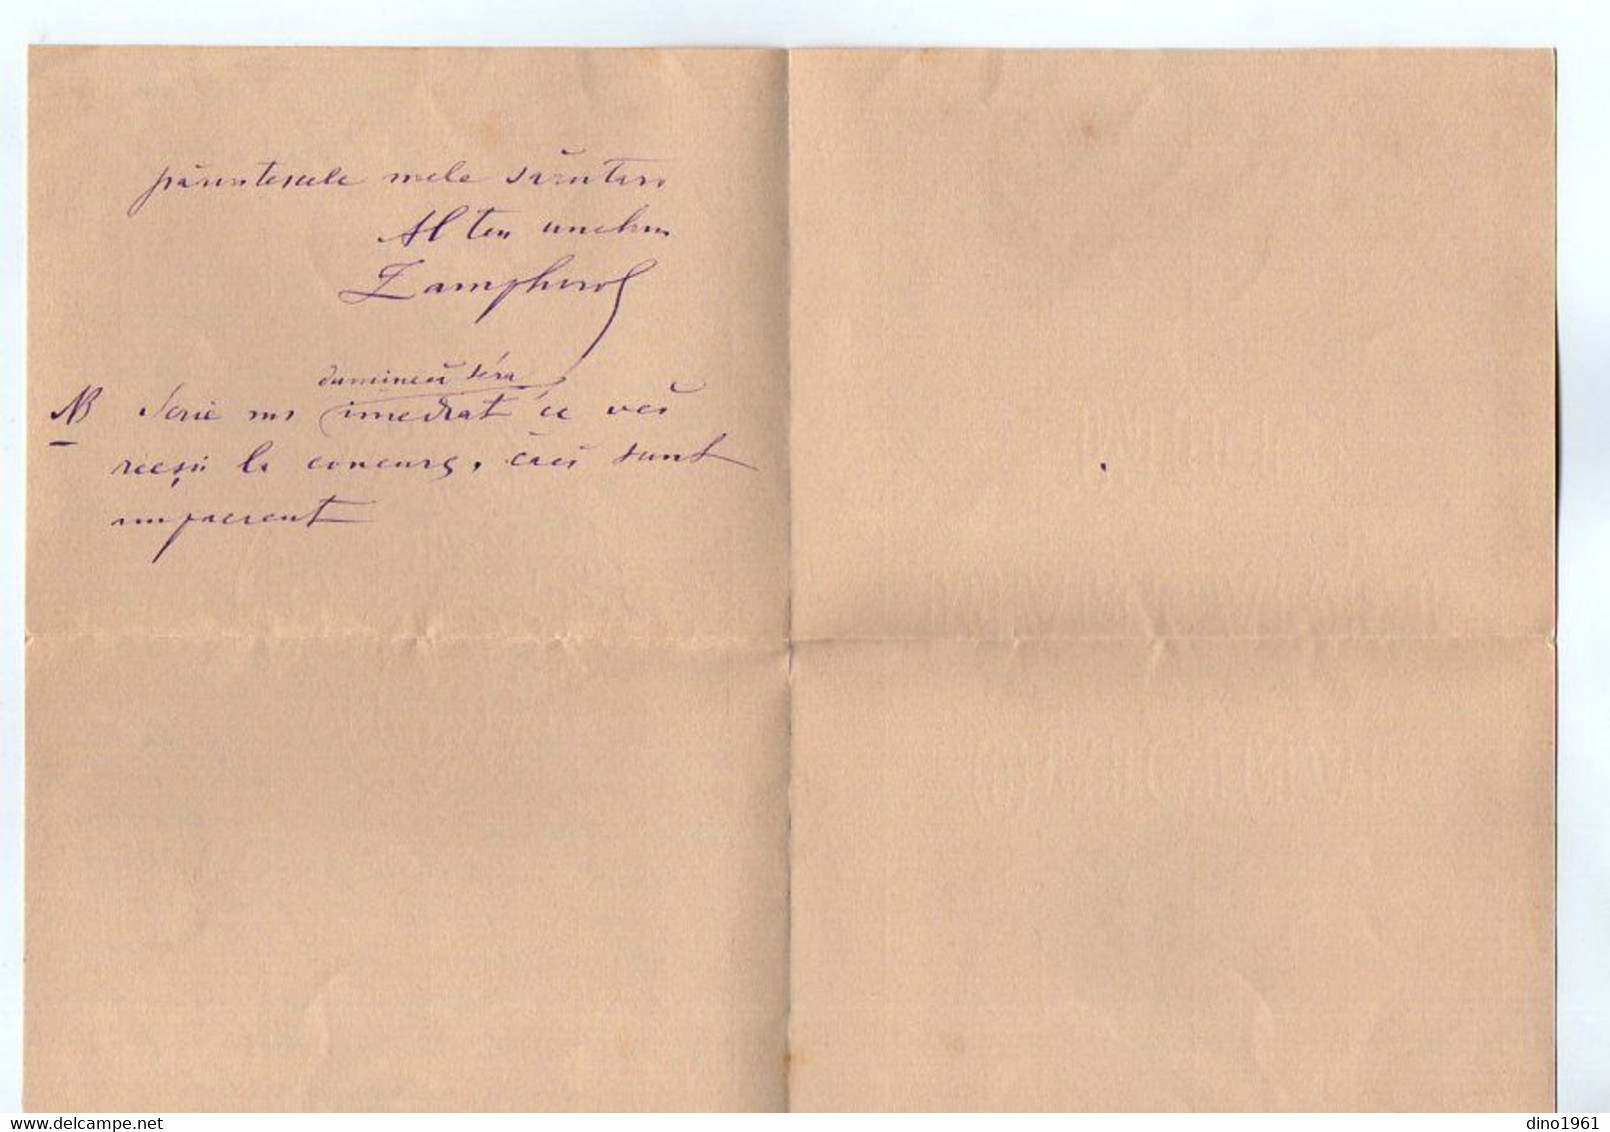 părintescele mele sărutări
Al teu unchiu
Zampherol
duminecă séra
NB Scrie mi imediat ce veĭ
reeşi la concurs, căcĭ sunt
impacient
www.delcampe.net
dino1961